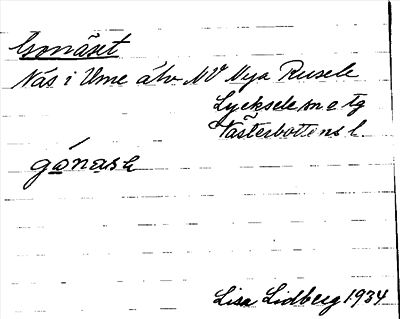 Gonäset
Näs i Ume älv NV Nya Rusele
Lycksele sn o tg
Västerbottens l.
gónasɛ
Lisa Lidberg 1934